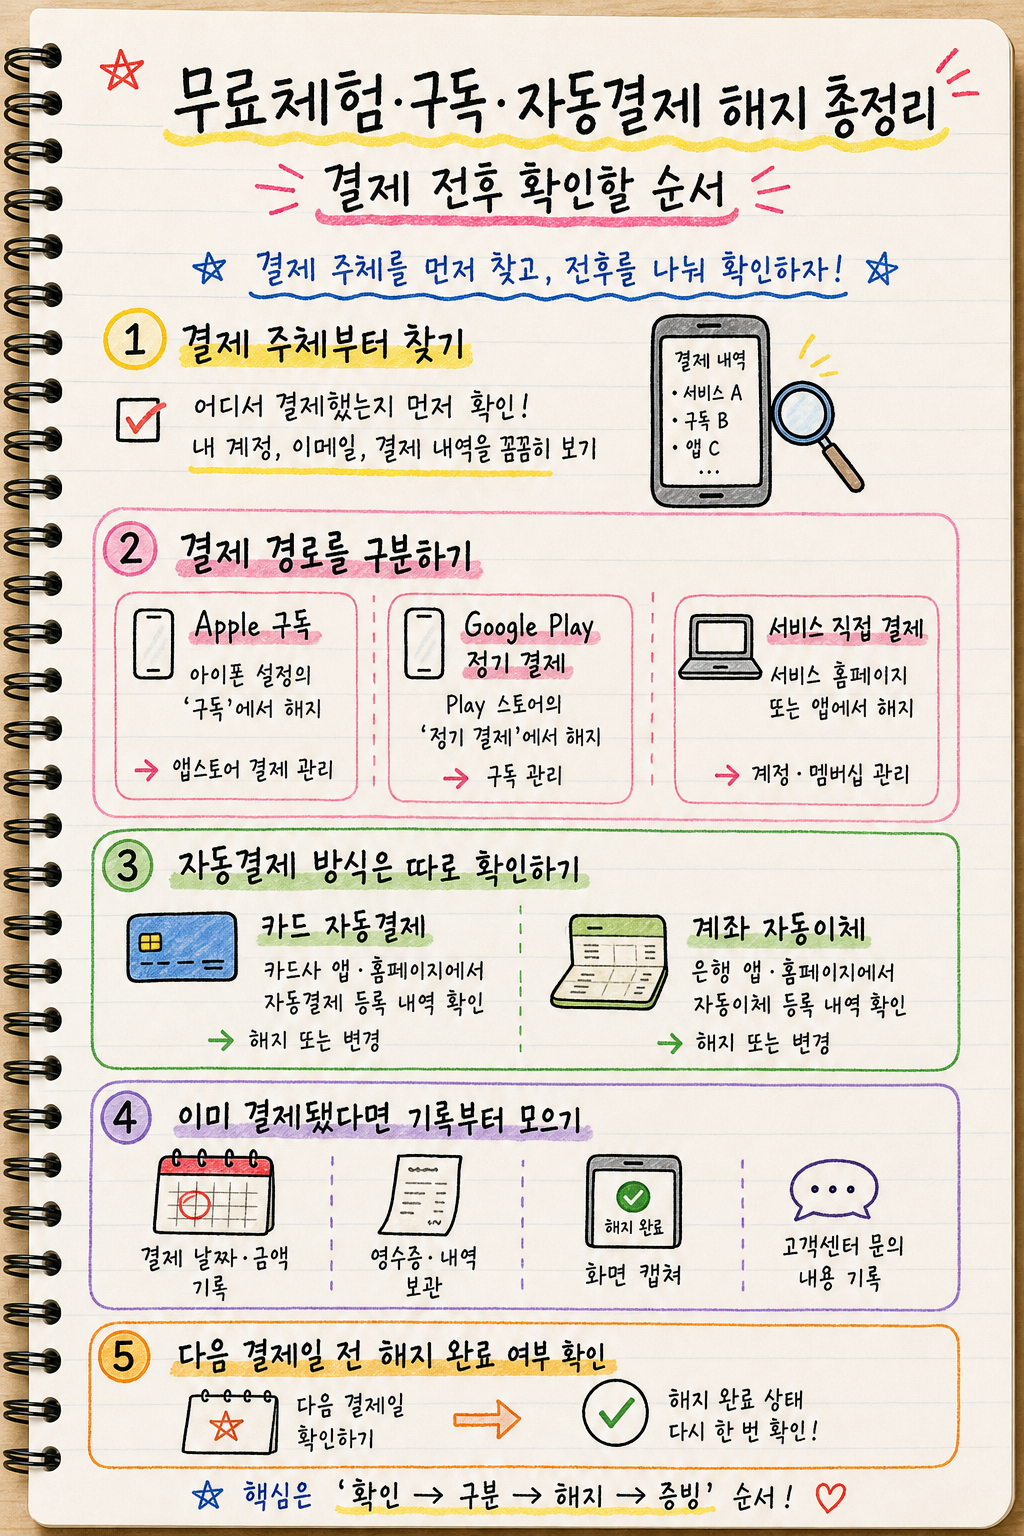 무료체험·구독·자동결제 해지 총정리
결제 전후 확인할 순서
결제 주체를 먼저 찾고, 전후를 나눠 확인하자!
1 결제 주체부터 찾기
어디서 결제했는지 먼저 확인!
내 계정, 이메일, 결제 내역을 꼼꼼히 보기
결제 내역
• 서비스 A
• 구독 B
• 앱 C
...
2 결제 경로를 구분하기
Apple 구독
아이폰 설정의
'구독'에서 해지
→ 앱스토어 결제 관리
Google Play
정기 결제
Play 스토어의
'정기 결제'에서 해지
→ 구독 관리
서비스 직접 결제
서비스 홈페이지
또는 앱에서 해지
→ 계정·멤버십 관리
3 자동결제 방식은 따로 확인하기
카드 자동결제
카드사 앱·홈페이지에서
자동결제 등록 내역 확인
→ 해지 또는 변경
계좌 자동이체
은행 앱·홈페이지에서
자동이체 등록 내역 확인
→ 해지 또는 변경
4 이미 결제됐다면 기록부터 모으기
결제 날짜·금액
기록
영수증·내역
보관
해지 완료
화면 캡쳐
고객센터 문의
내용 기록
5 다음 결제일 전 해지 완료 여부 확인
다음 결제일
확인하기
해지 완료 상태
다시 한 번 확인!
핵심은 '확인 → 구분 → 해지 → 증빙' 순서!